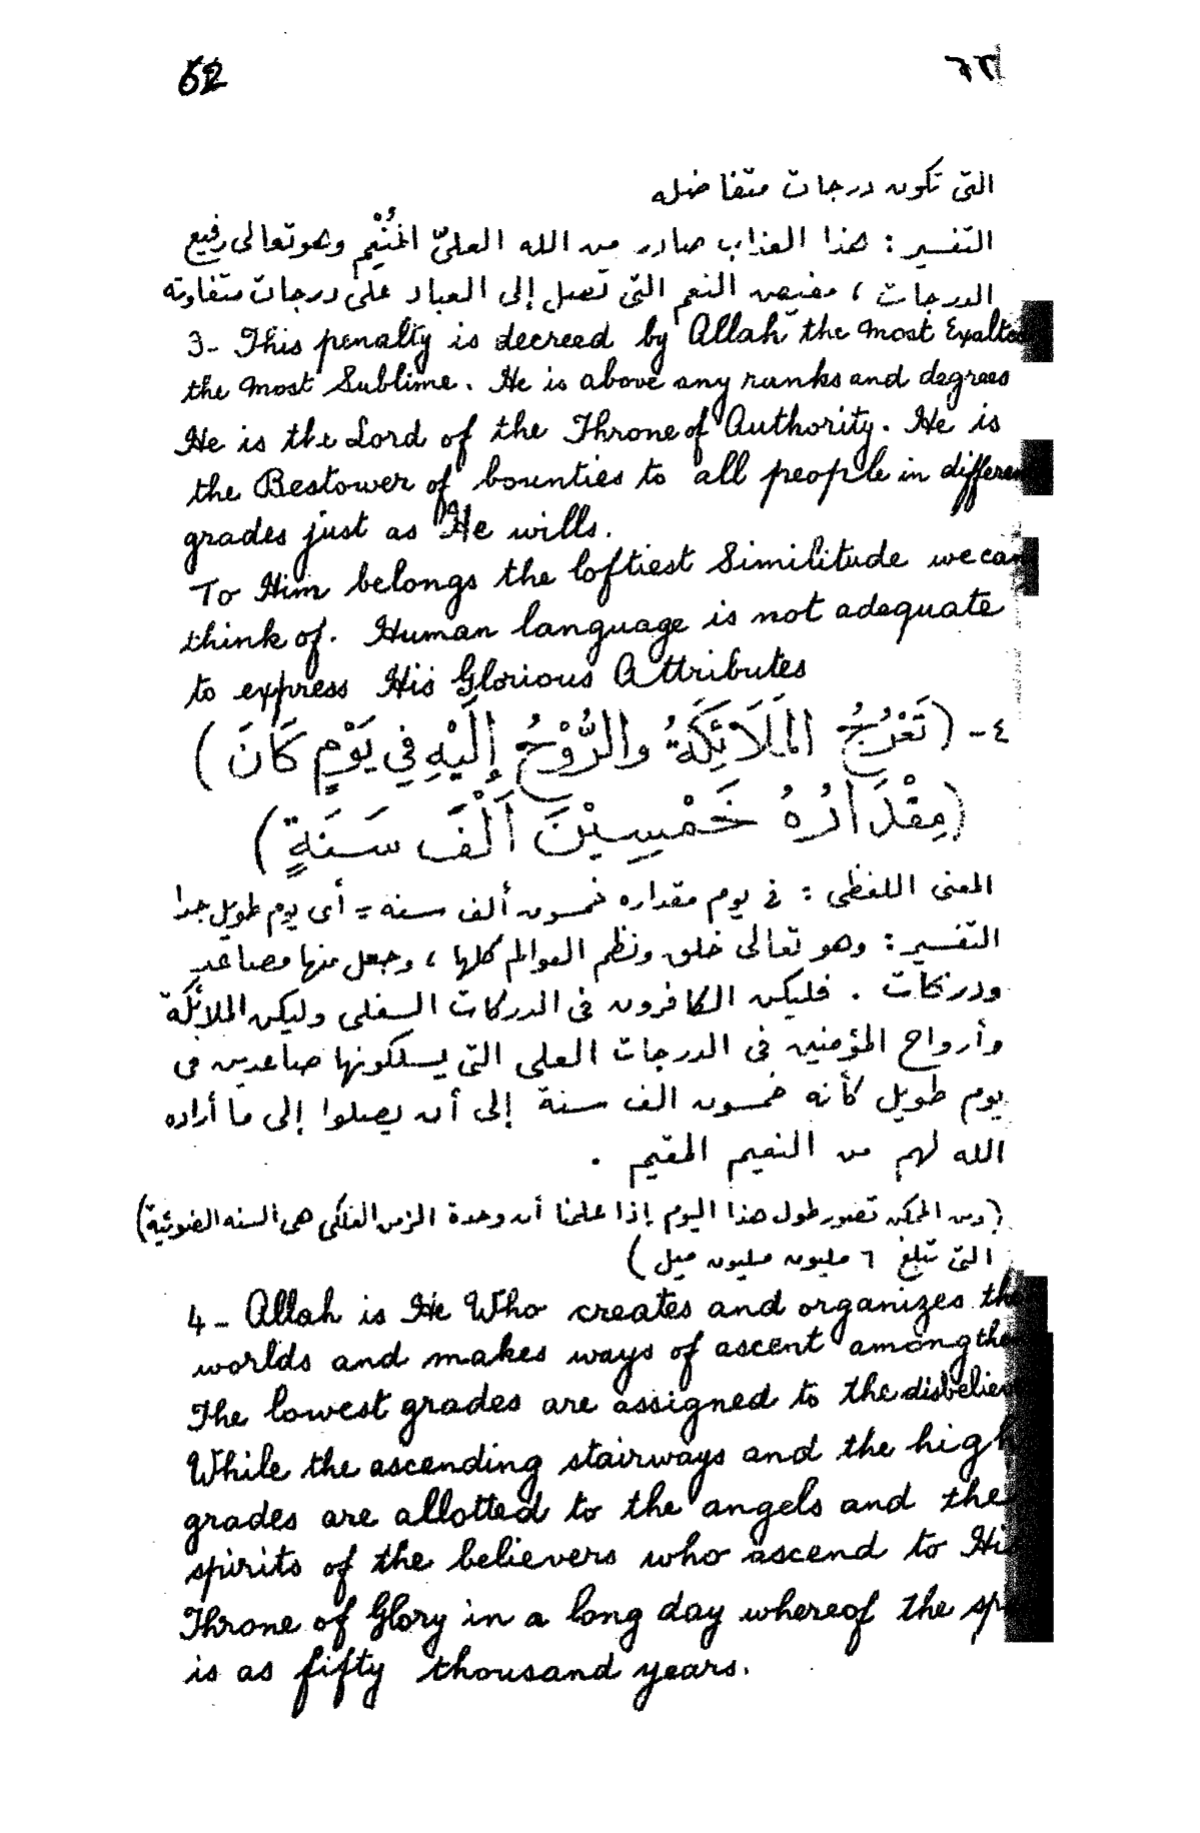 62
٦٢
التى تكون درجات متفاضله
التفسير : هذا العذاب صادر من الله العلىّ المُنْعِم وهو تعالى رفيع
الدرجات ، مفيض النعم التى تصل إلى العباد على درجات متفاوته
3- This penalty is decreed by Allah the Most
the Most Sublime. He is above any ranks and degrees
He is the Lord of the Throne of Authority. He is
the Bestower of bounties to all people in
grades just as He wills.
To Him belongs the loftiest Similitude we can
think of. Human language is not adequate
to express His Glorious Attributes
٤- (تَعْرُجُ المَلَائِكَةُ والرُّوْحُ إِلَيْهِ فِي يَوْمٍ كَانَ )
(مِقْدَارُهُ خَمْسِيْنَ أَلْفَ سَنَةٍ)
المعنى اللفظى : فى يوم مقداره خمسون ألف سنه = أى يوم طويل جدا
التفسير : وهو تعالى خلق ونظم العوالم كلها ، وجعل منها مصاعد
ودركات . فليكن الكافرون فى الدركات السفلى وليكن الملائكة
وأرواح المؤمنين فى الدرجات العلى التى يسلكونها صاعدين فى
يوم طويل كأنه خمسون الف سنة إلى أن يصلوا إلى ما أراده
الله لهم من النعيم المقيم .
(ومن الممكن تصور طول هذا اليوم إذا علمنا أن وحدة الزمن الفلكى هى السنه الضوئية)
التى تبلغ ٦ مليون مليون ميل )
4- Allah is He Who creates and organizes the
worlds and makes ways of ascent among the
The lowest grades are assigned to the
While the ascending stairways and the high
grades are allotted to the angels and the
spirits of the believers who ascend to His
Throne of Glory in a long day whereof the
is as fifty thousand years.